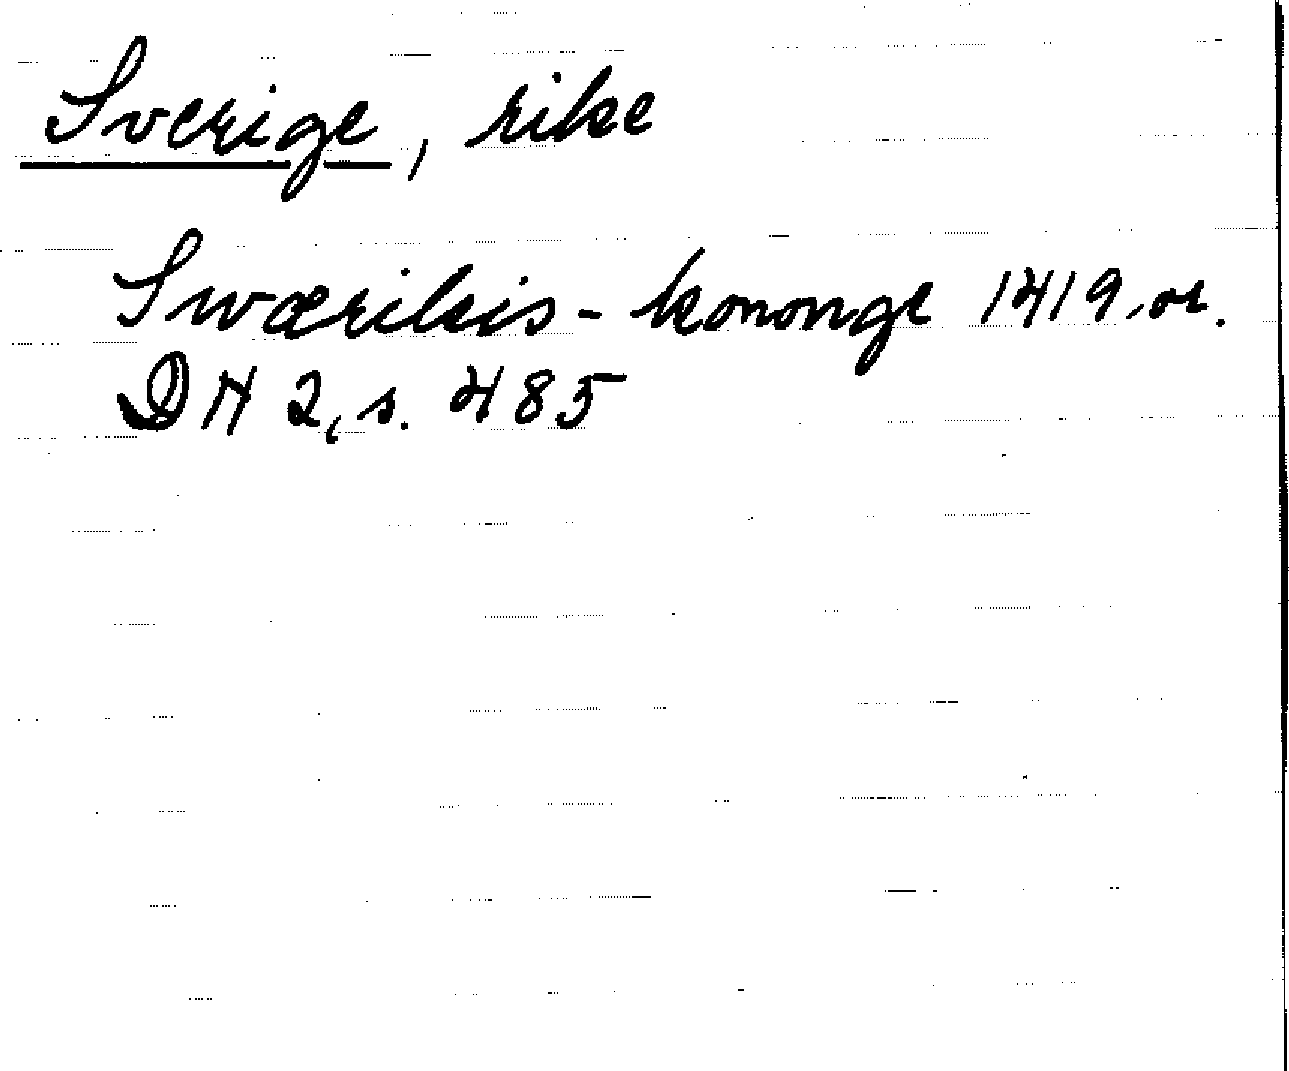 Sverige, rike
Swærikis - kononge 1419, or.
DN 2, s. 485